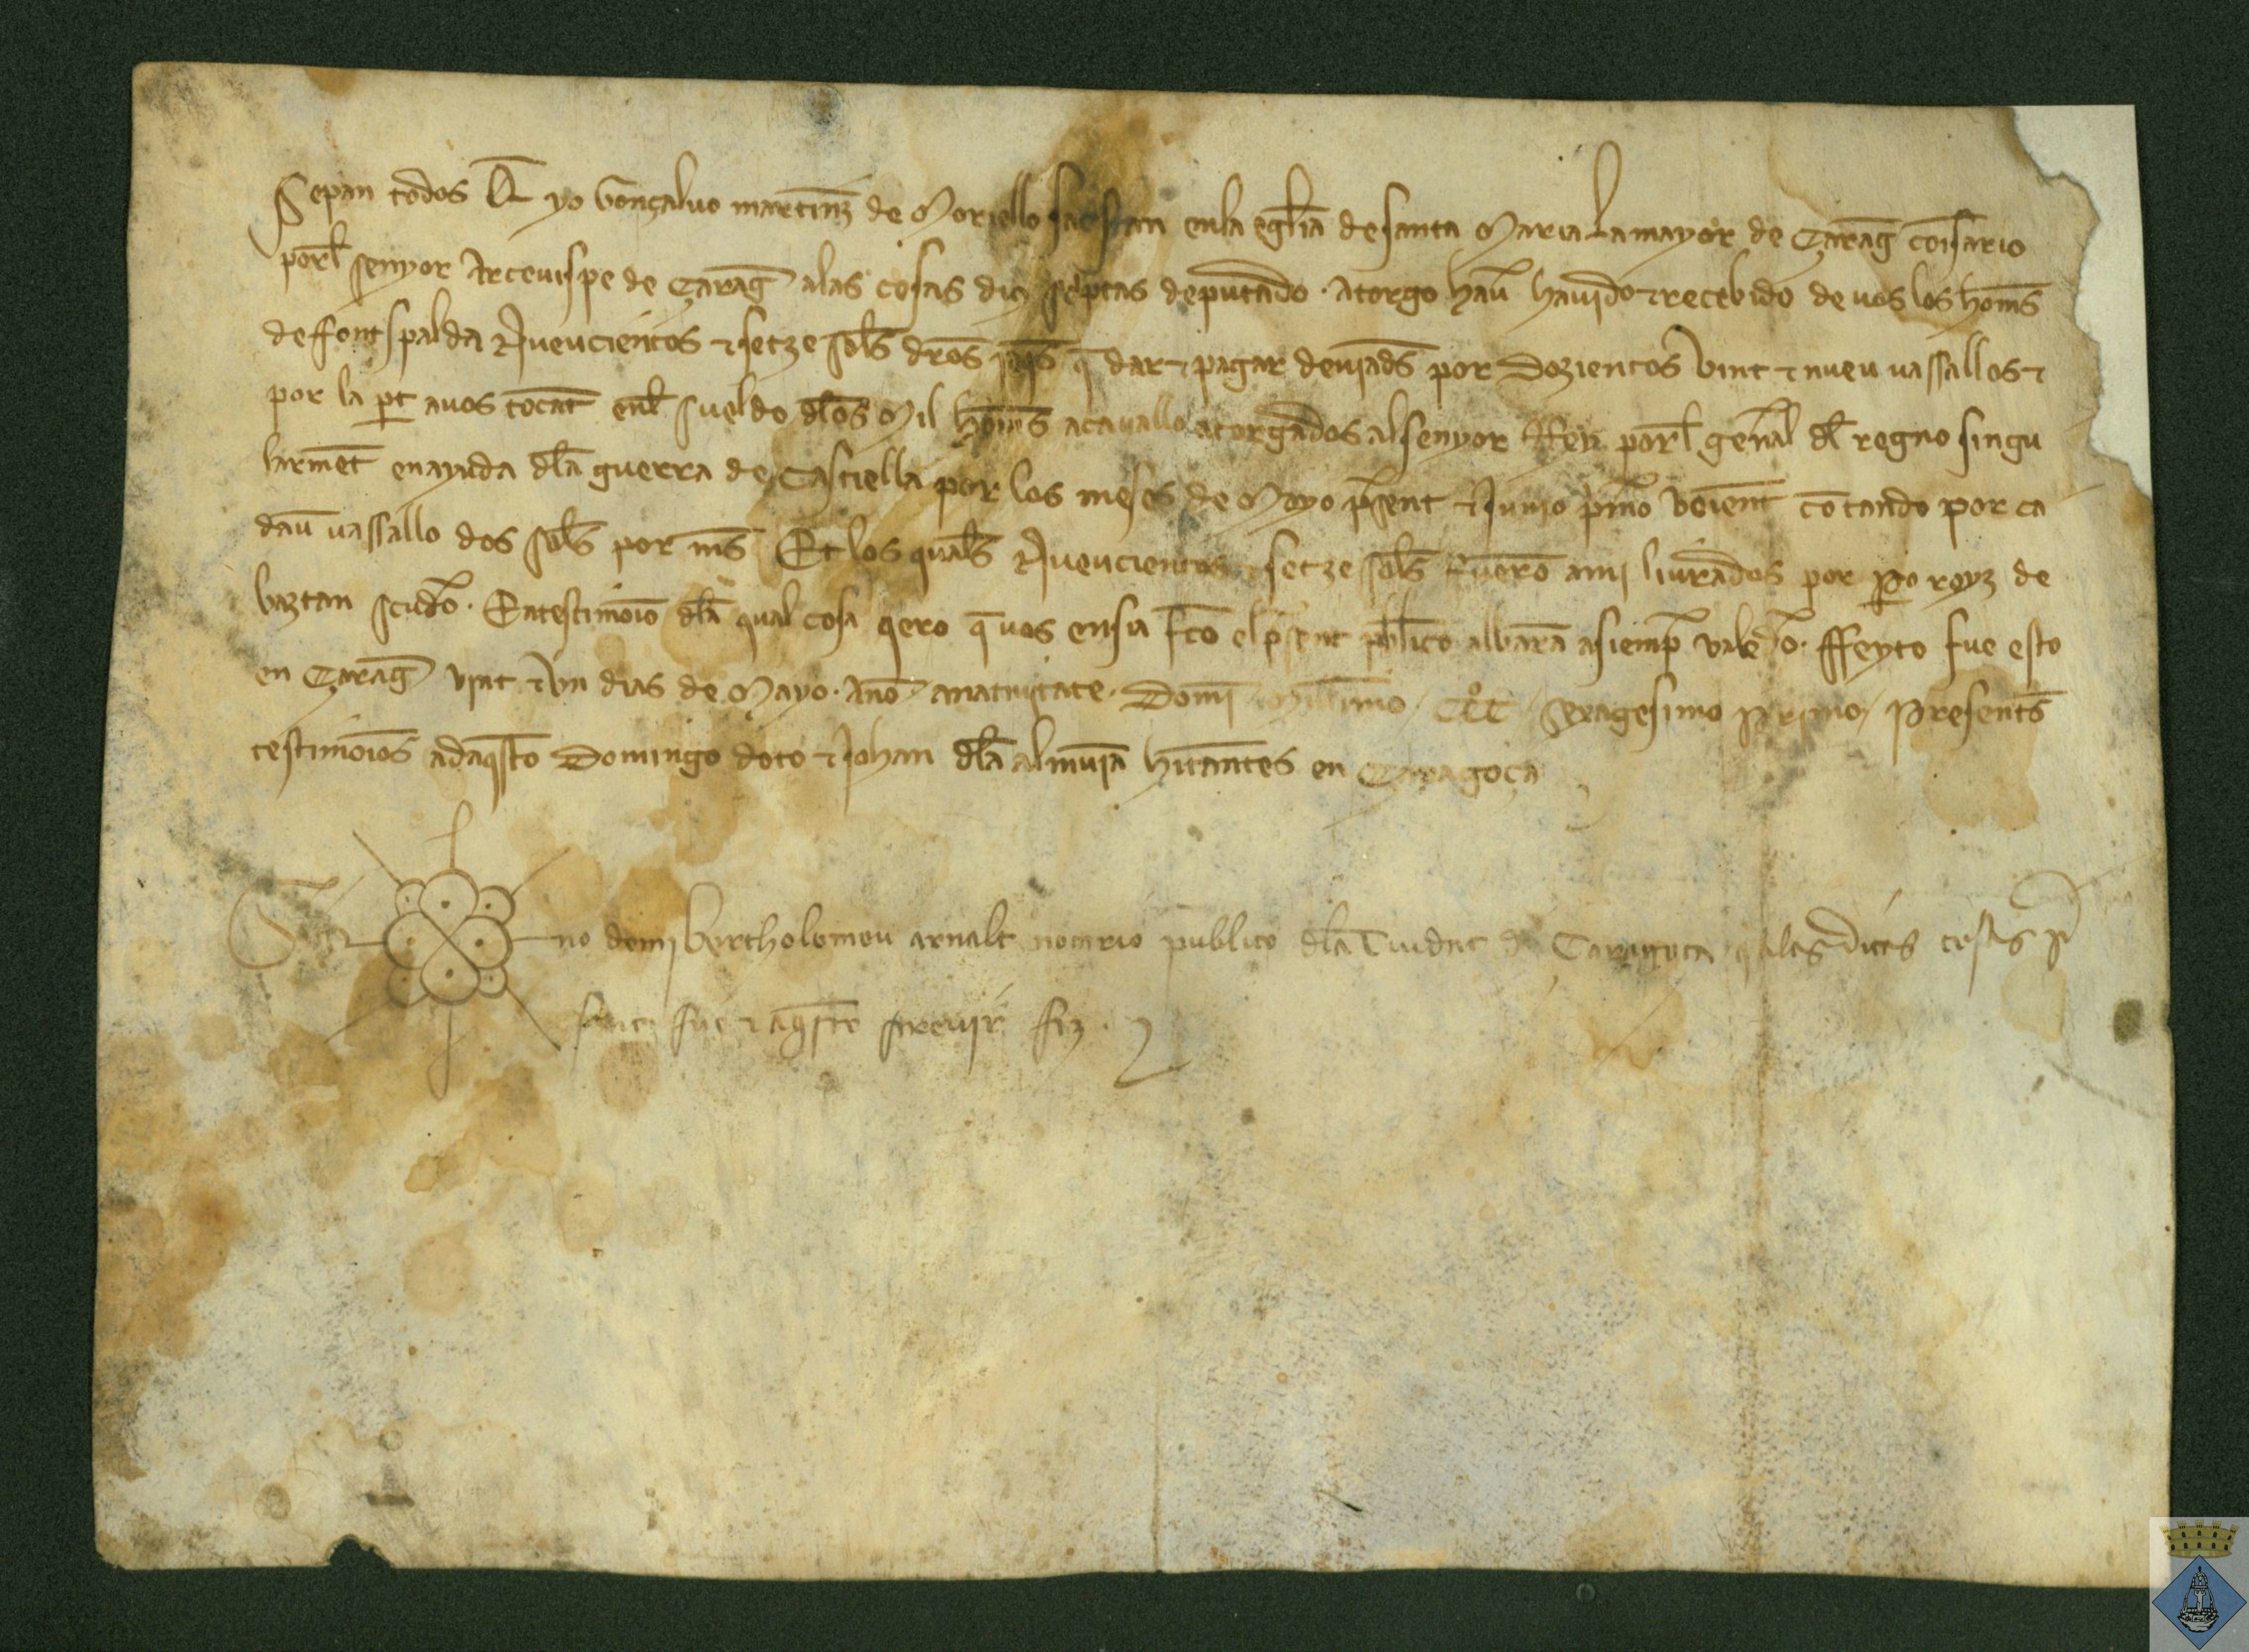 Sepan todos Q̄ yo Gonçaluo martinz de Moriello sacristan enla eglīa desanta Maria La mayor de Çaraḡ comīsario
porl senyor Arceuispe de Çaraḡ alas cosas dius sc̄ptas deputado · Atorgo hau̅ hauido ⁊ recebido de uos los hom̄s
deffontspalda Nueucientos ⁊ setze sol̄s dr̄os jaq̄s q̄ dar ⁊ pagar deuiad̄s por Dozientos vint ⁊ nueu uassallos ⁊
por la p̱t auos tocāt enl̄ sueldo dl̄os Mil hom̄s acauallo atorgados al senyor Rey porl̄ gen̄al dl̄ regno singu
larmēt en ayuda dl̄a guerra de Castiella por los meses de Mayo p̄sent ⁊ Junio p̄mo veiēnt cōtando por ca
dau̅ uassallo dos sol̄s por m̄s Et los qual̄s Nueucientos ⁊ setze sol̄s fuerō ami liurados por p̱o royz de
baztan scud̄o · Ē testimoīo dl̄a qual cosa q̄ero q̄ uos ensia fc̄o el p̄sent pūblico albarā asiemp̄ valed̄o · ffeyto fue esto
en Çaraḡ vint ⁊ vn dias de Mayo · Anō anatiuitate · Domī Millīmo / CCC° / sexagesimo primo / Present̄s
testimoīos adaq̄sto Domingo doto ⁊ Johan dl̄a almuīa hītantes en Çaragoça
Sig no demj bertholomeu arnalt notario publico dl̄a Ciudat de Çaragoça q̄ alas ditas cosas p̄
sent fue ⁊ aq̄sto screuir fiz ·